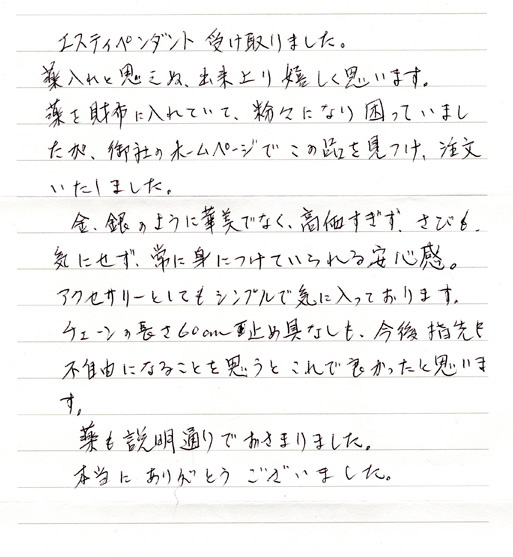 エスティペンダント 受け取りました。
薬入れと思えぬ、出来上り嬉しく思います。
薬を財布に入れていて、粉々になり困っていまし
たが、御社のホームページでこの品を見つけ、注文
いたしました。
金、銀のように華美でなく、高価すぎず、さびも、
気にせず、常に身につけていられる安心感。
アクセサリーとしてもシンプルで気に入っております。
チェーンの長さ60cm 止め具なしも、今後 指先も
不自由になることを思うと これで良かったと思いま
す。
薬も説明通りでおさまりました。
本当に ありがとう ございました。